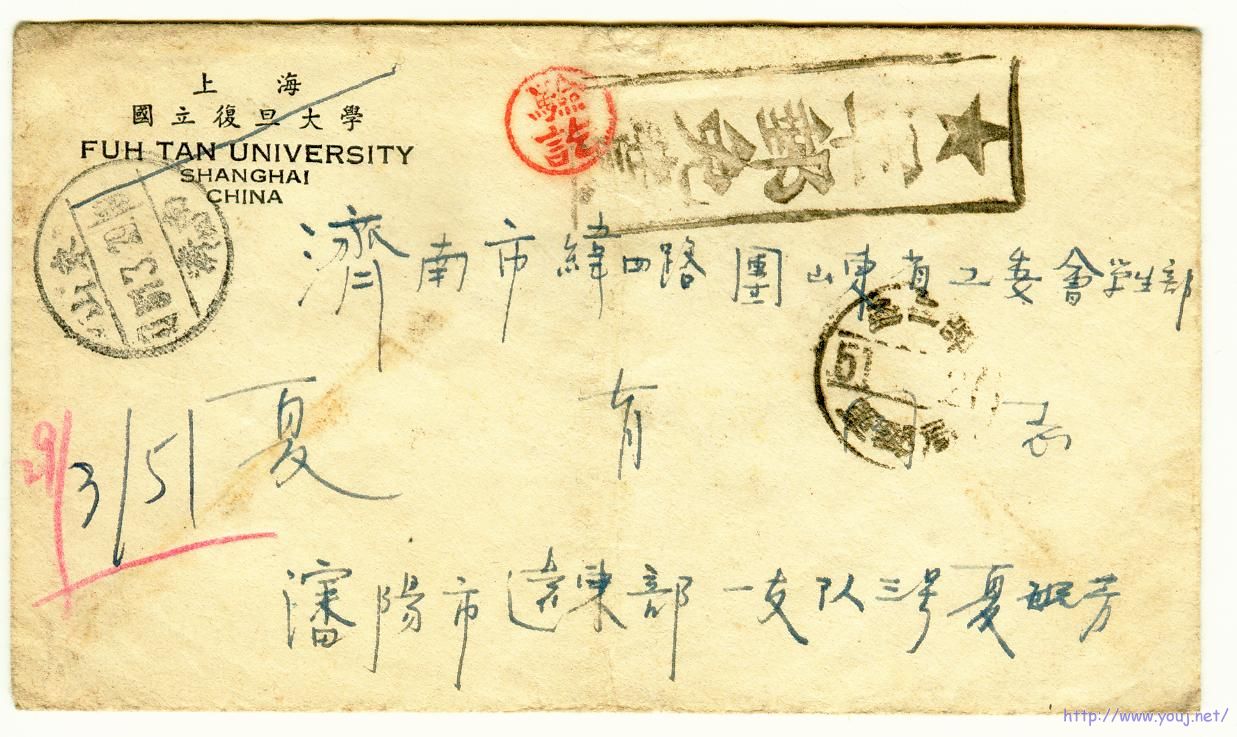 上海
國立復旦大學
FUH TAN UNIVERSITY
SHANGHAI
CHINA
驗訖
濟南市緯四路團山東省工委會学生部
夏育同志
29/3/51
瀋陽市遠東部一支队三号夏芳
山東
濟南
51
http://www.youj.net/